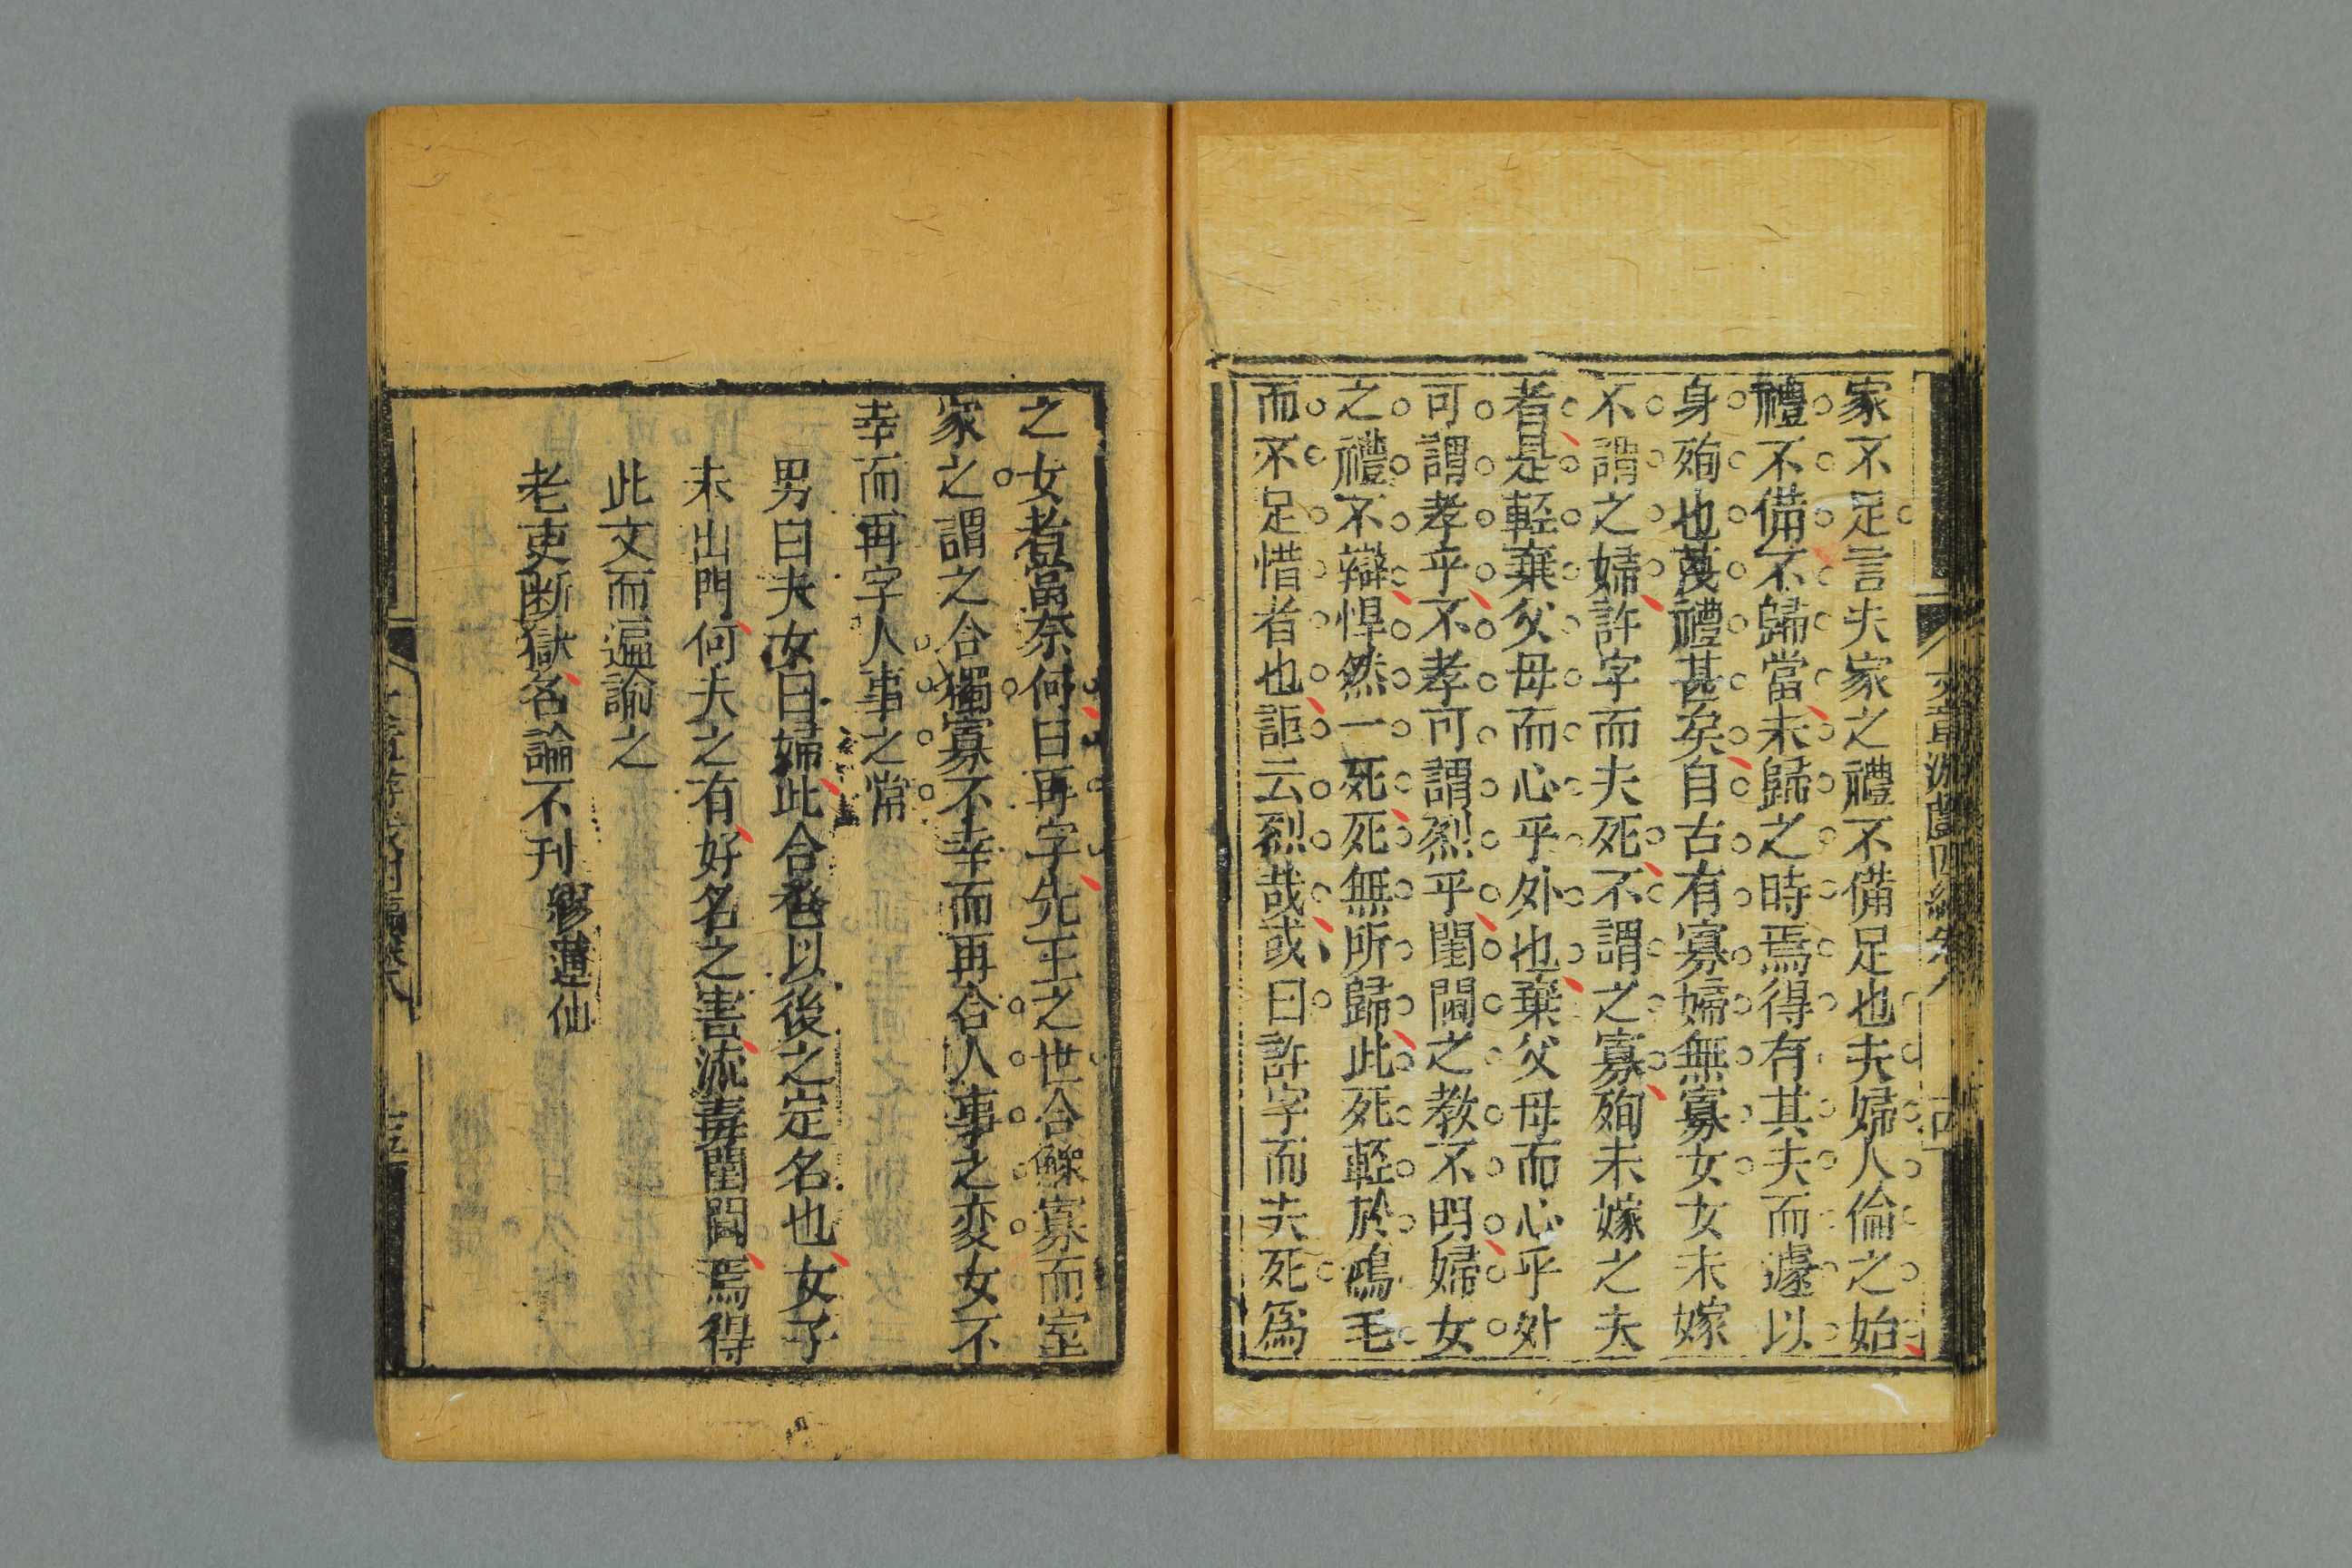 家不足言夫家之禮不備足也夫婦人倫之始
禮不備不歸當未歸之時焉得有其夫而遽以
身殉也蔑禮甚矣自古有寡婦無寡女女未嫁
不謂之婦許字而夫死不謂之寡殉未嫁之夫
者是輕棄父母而心乎外也棄父母而心乎外
可謂孝乎不孝可謂烈乎閨閫之教不明婦女
之禮不辯悍然一死死無所歸此死輕於鴻毛
而不足惜者也詎云烈哉或曰許字而夫死爲
之女者當奈何曰再字先王之世合鰥寡而室
家之謂之合獨寡不幸而再合人事之変女不
幸而再字人事之常
男曰夫女曰婦此合卺以後之定名也女子
未出門何夫之有好名之害流毒閨閫焉得
此文而遍諭之
老吏断獄名論不刊 繆蓮仙